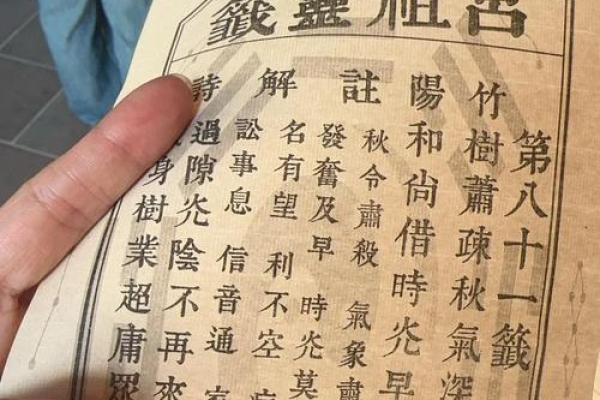 呂祖靈籤
第八十一籤
竹樹蕭疎秋氣深
陽和尙借時光早
註 秋令肅殺 氣象肅
發奮及早 時光莫
解 名有望 利不空
訟事息 信音通
詩 過隙光陰不再來
身樹業超庸眾